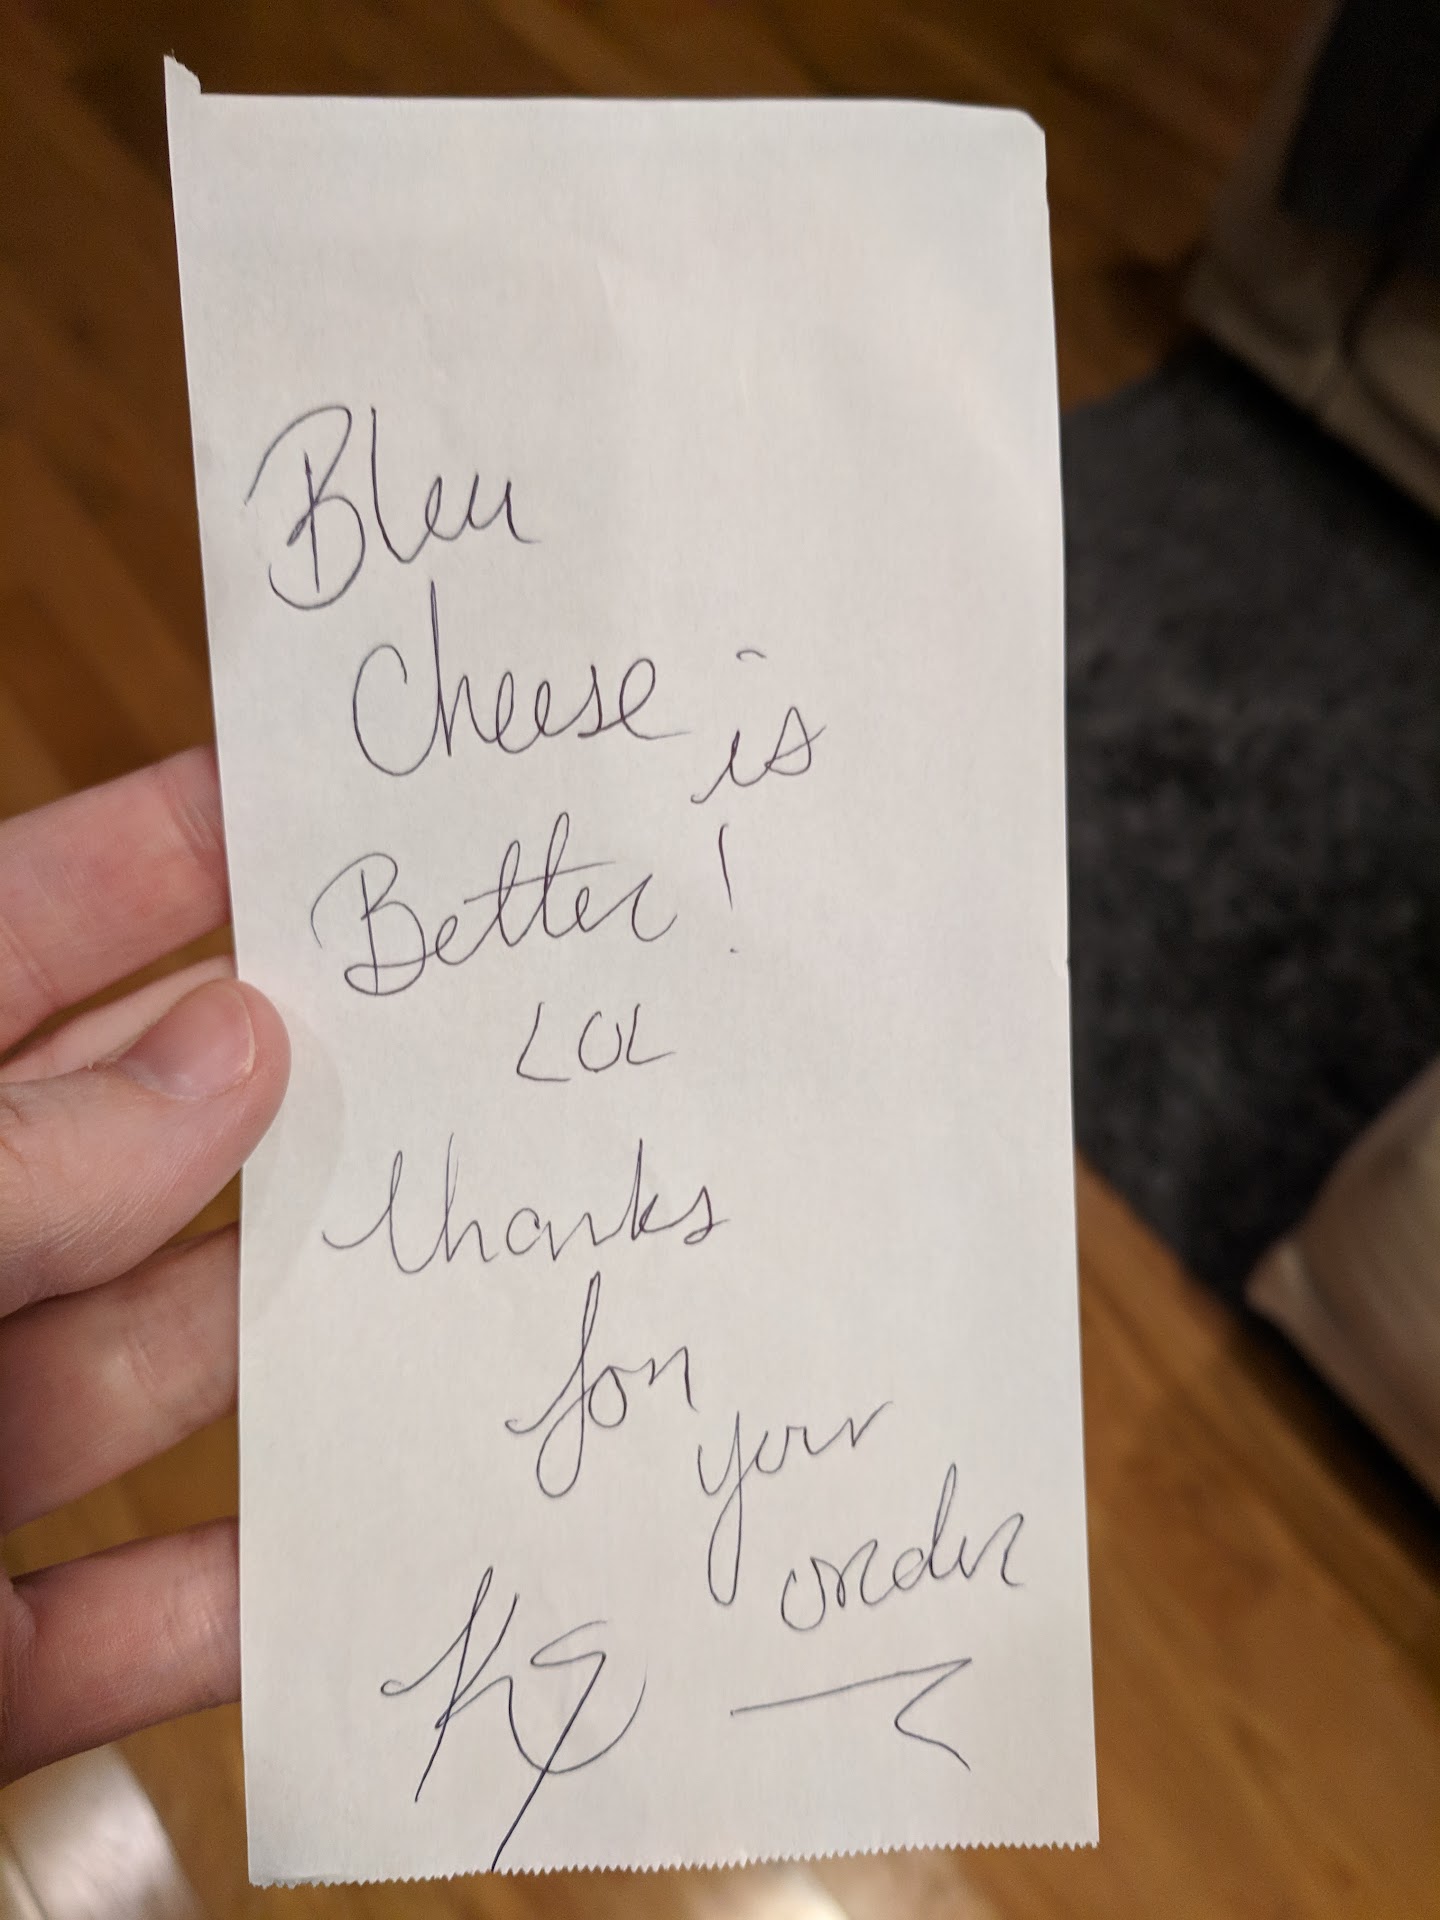 Bleu
Cheese is
Better!
LOL
thanks
for
your
order